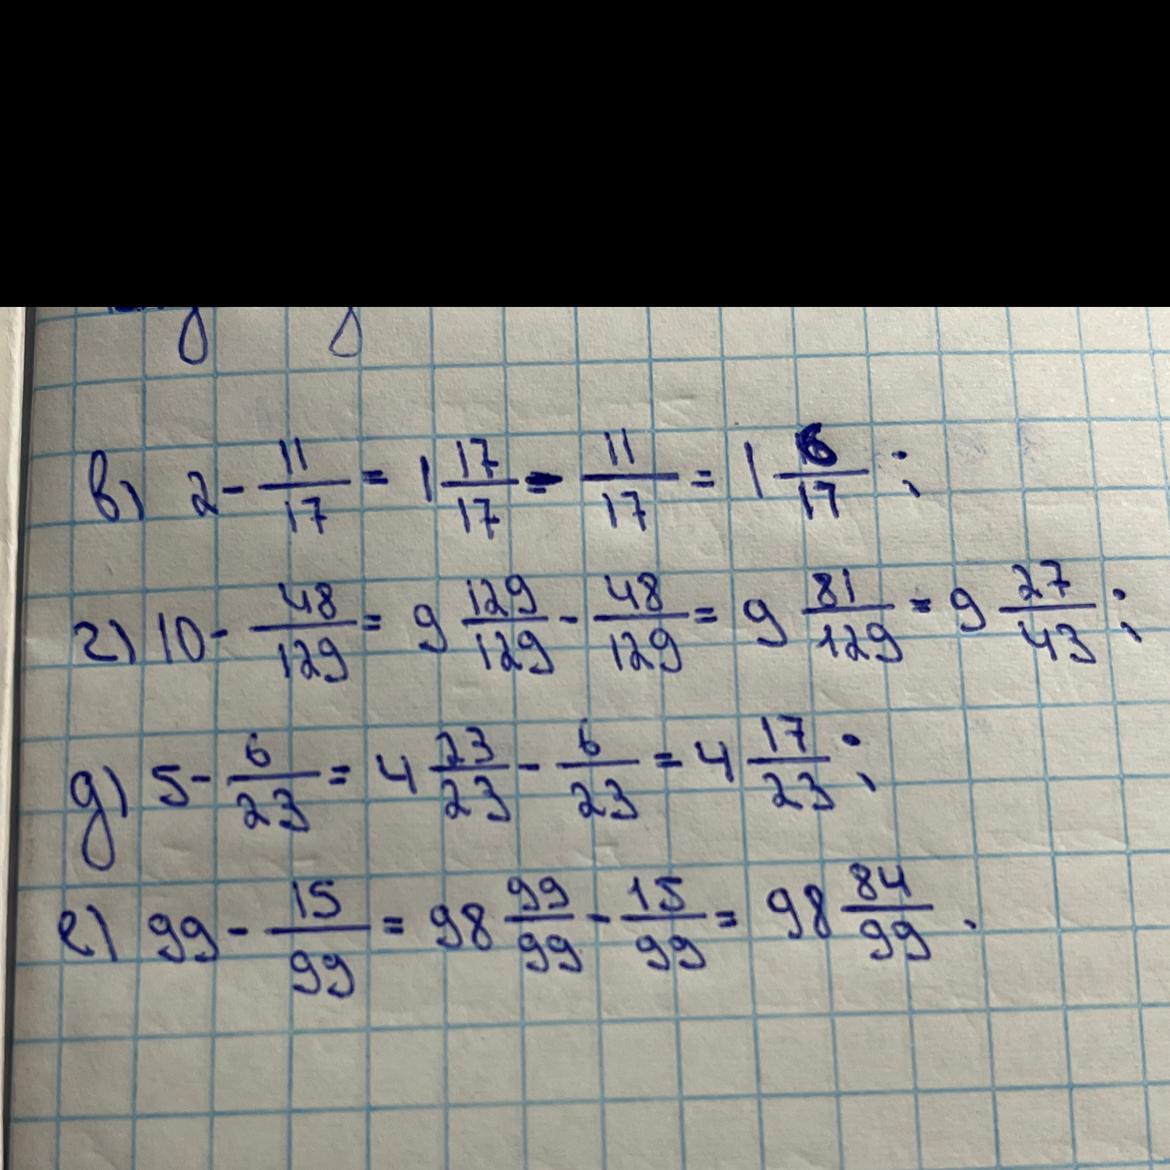 в) 2 - 11/17 = 1 17/17 - 11/17 = 1 6/17 ;
г) 10 - 48/129 = 9 129/129 - 48/129 = 9 81/129 = 9 27/43 ;
д) 5 - 6/23 = 4 23/23 - 6/23 = 4 17/23 ;
е) 99 - 15/99 = 98 99/99 - 15/99 = 98 84/99 .